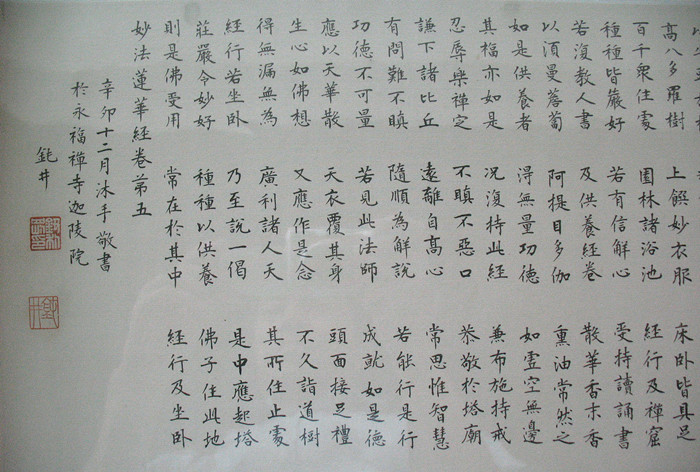 髙八多羅樹 上饌妙衣服 床臥皆具足
百千眾住處 園林諸浴池 經行及禪窟
種種皆嚴好 若有信解心 受持讀誦書
若復教人書 及供養經卷 散華香末香
以須曼薝蔔 阿提目多伽 熏油常然之
如是供養者 得無量功德 如虛空無邊
其福亦如是 況復持此經 兼布施持戒
忍辱樂禪定 不瞋不惡口 恭敬於塔廟
謙下諸比丘 遠離自髙心 常思惟智慧
有問難不瞋 隨順為解說 若能行是行
功德不可量 若見此法師 成就如是德
應以天華散 天衣覆其身 頭面接足禮
生心如佛想 又應作是念 不久詣道樹
得無漏無為 廣利諸人天 其所住止處
經行若坐臥 乃至說一偈 是中應起塔
莊嚴令妙好 種種以供養 佛子住此地
則是佛受用 常在於其中 經行及坐臥
妙法蓮華經卷第五
辛卯十二月沐手敬書
於永福禪寺迦陵院
鈍井